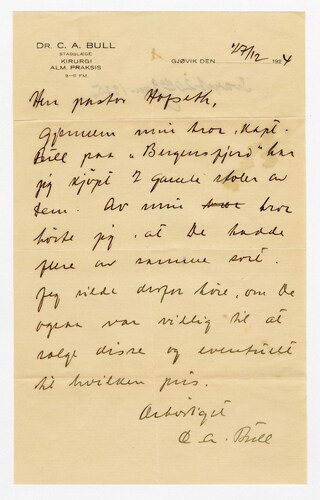 DR. C. A. BULL
STADSLÆGE
KIRURGI
ALM. PRAKSIS
9-11 FM.
GJØVIK DEN 17/12 1924
Herr pastor Hofseth,
Gjennem min bror, Kapt.
Bull paa "Bergensfjord" har
jeg kjøpt 2 gamle stoler av
Dem. Av min bror
hørte jeg, at De hadde
flere av samme sort.
Jeg vilde derfor høre, om De
ogsaa var villig til at
sælge disse og eventuelt
til hvilken pris.
Ærbødigst
C. A. Bull